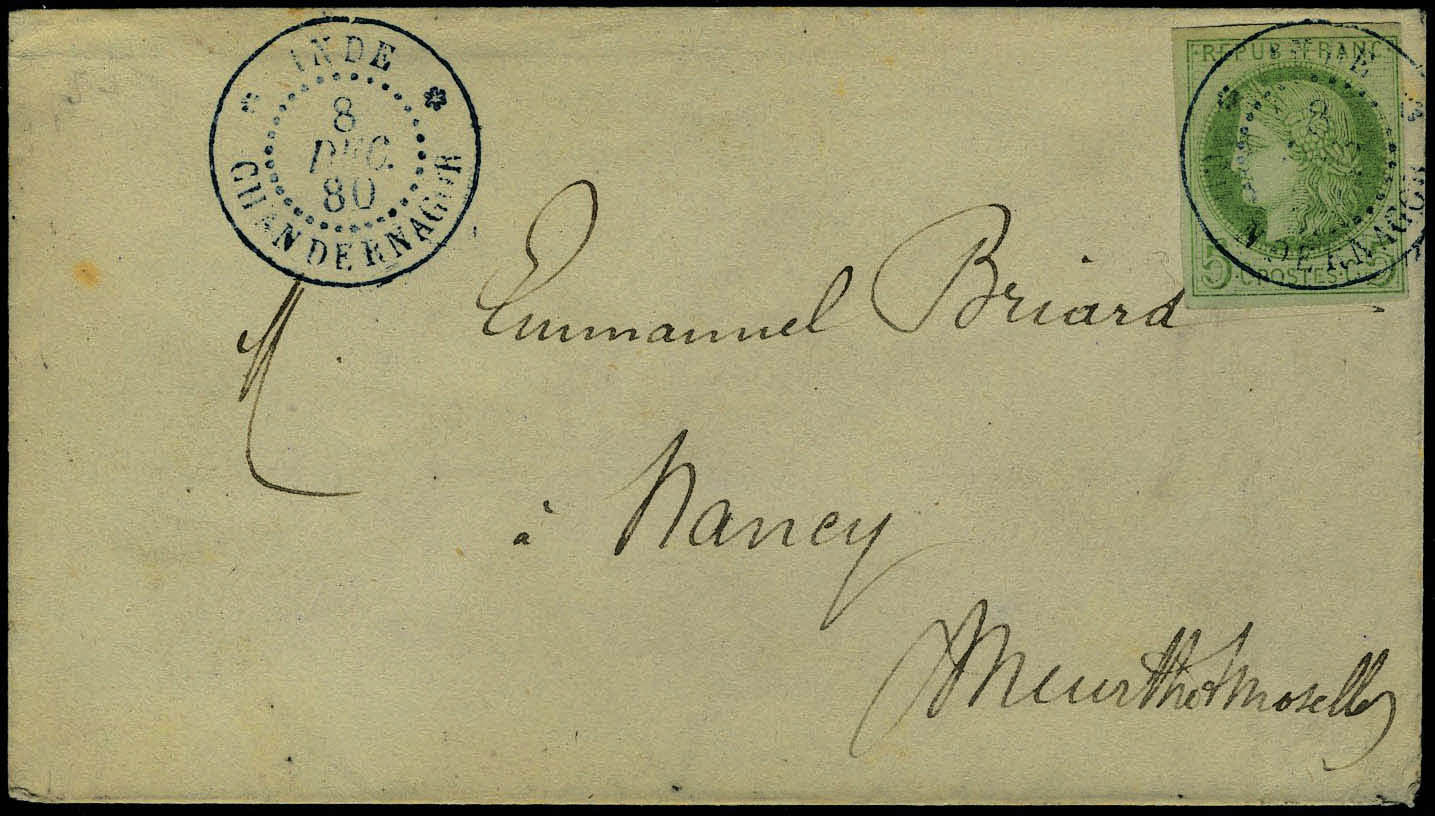 INDE
8
DEC.
80
CHANDERNAGOR
REPUB. FRANC.
5 C. POSTES C. 5
Emmanuel Briard
à Nancy
Meurthe & Moselle